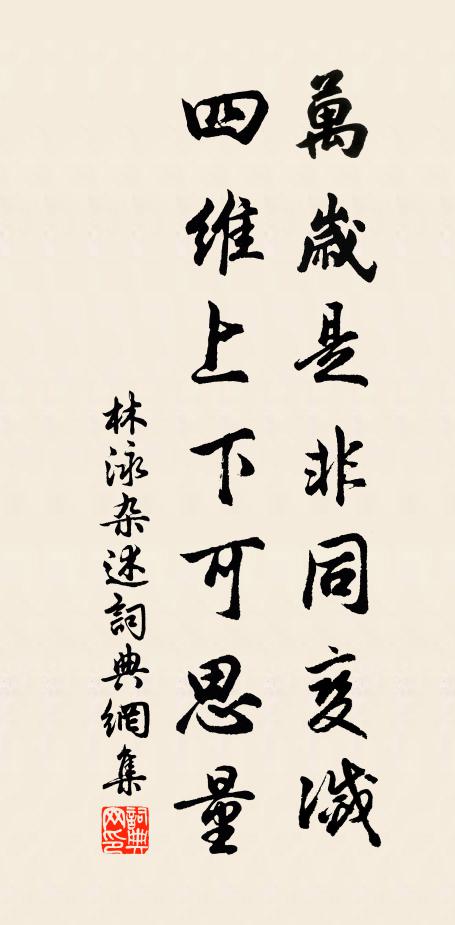 萬歲是非同变滅
四維上下可思量
林泳杂述詞典網集
詞典网印